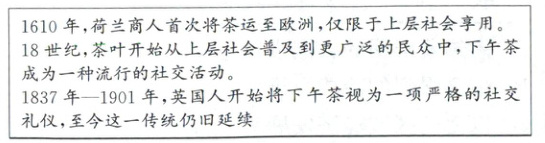 1610 年,荷兰商人首次将茶运至欧洲,仅限于上层社会享用。
18 世纪,茶叶开始从上层社会普及到更广泛的民众中,下午茶
成为一种流行的社交活动。
1837 年—1901 年,英国人开始将下午茶视为一项严格的社交
礼仪,至今这一传统仍旧延续